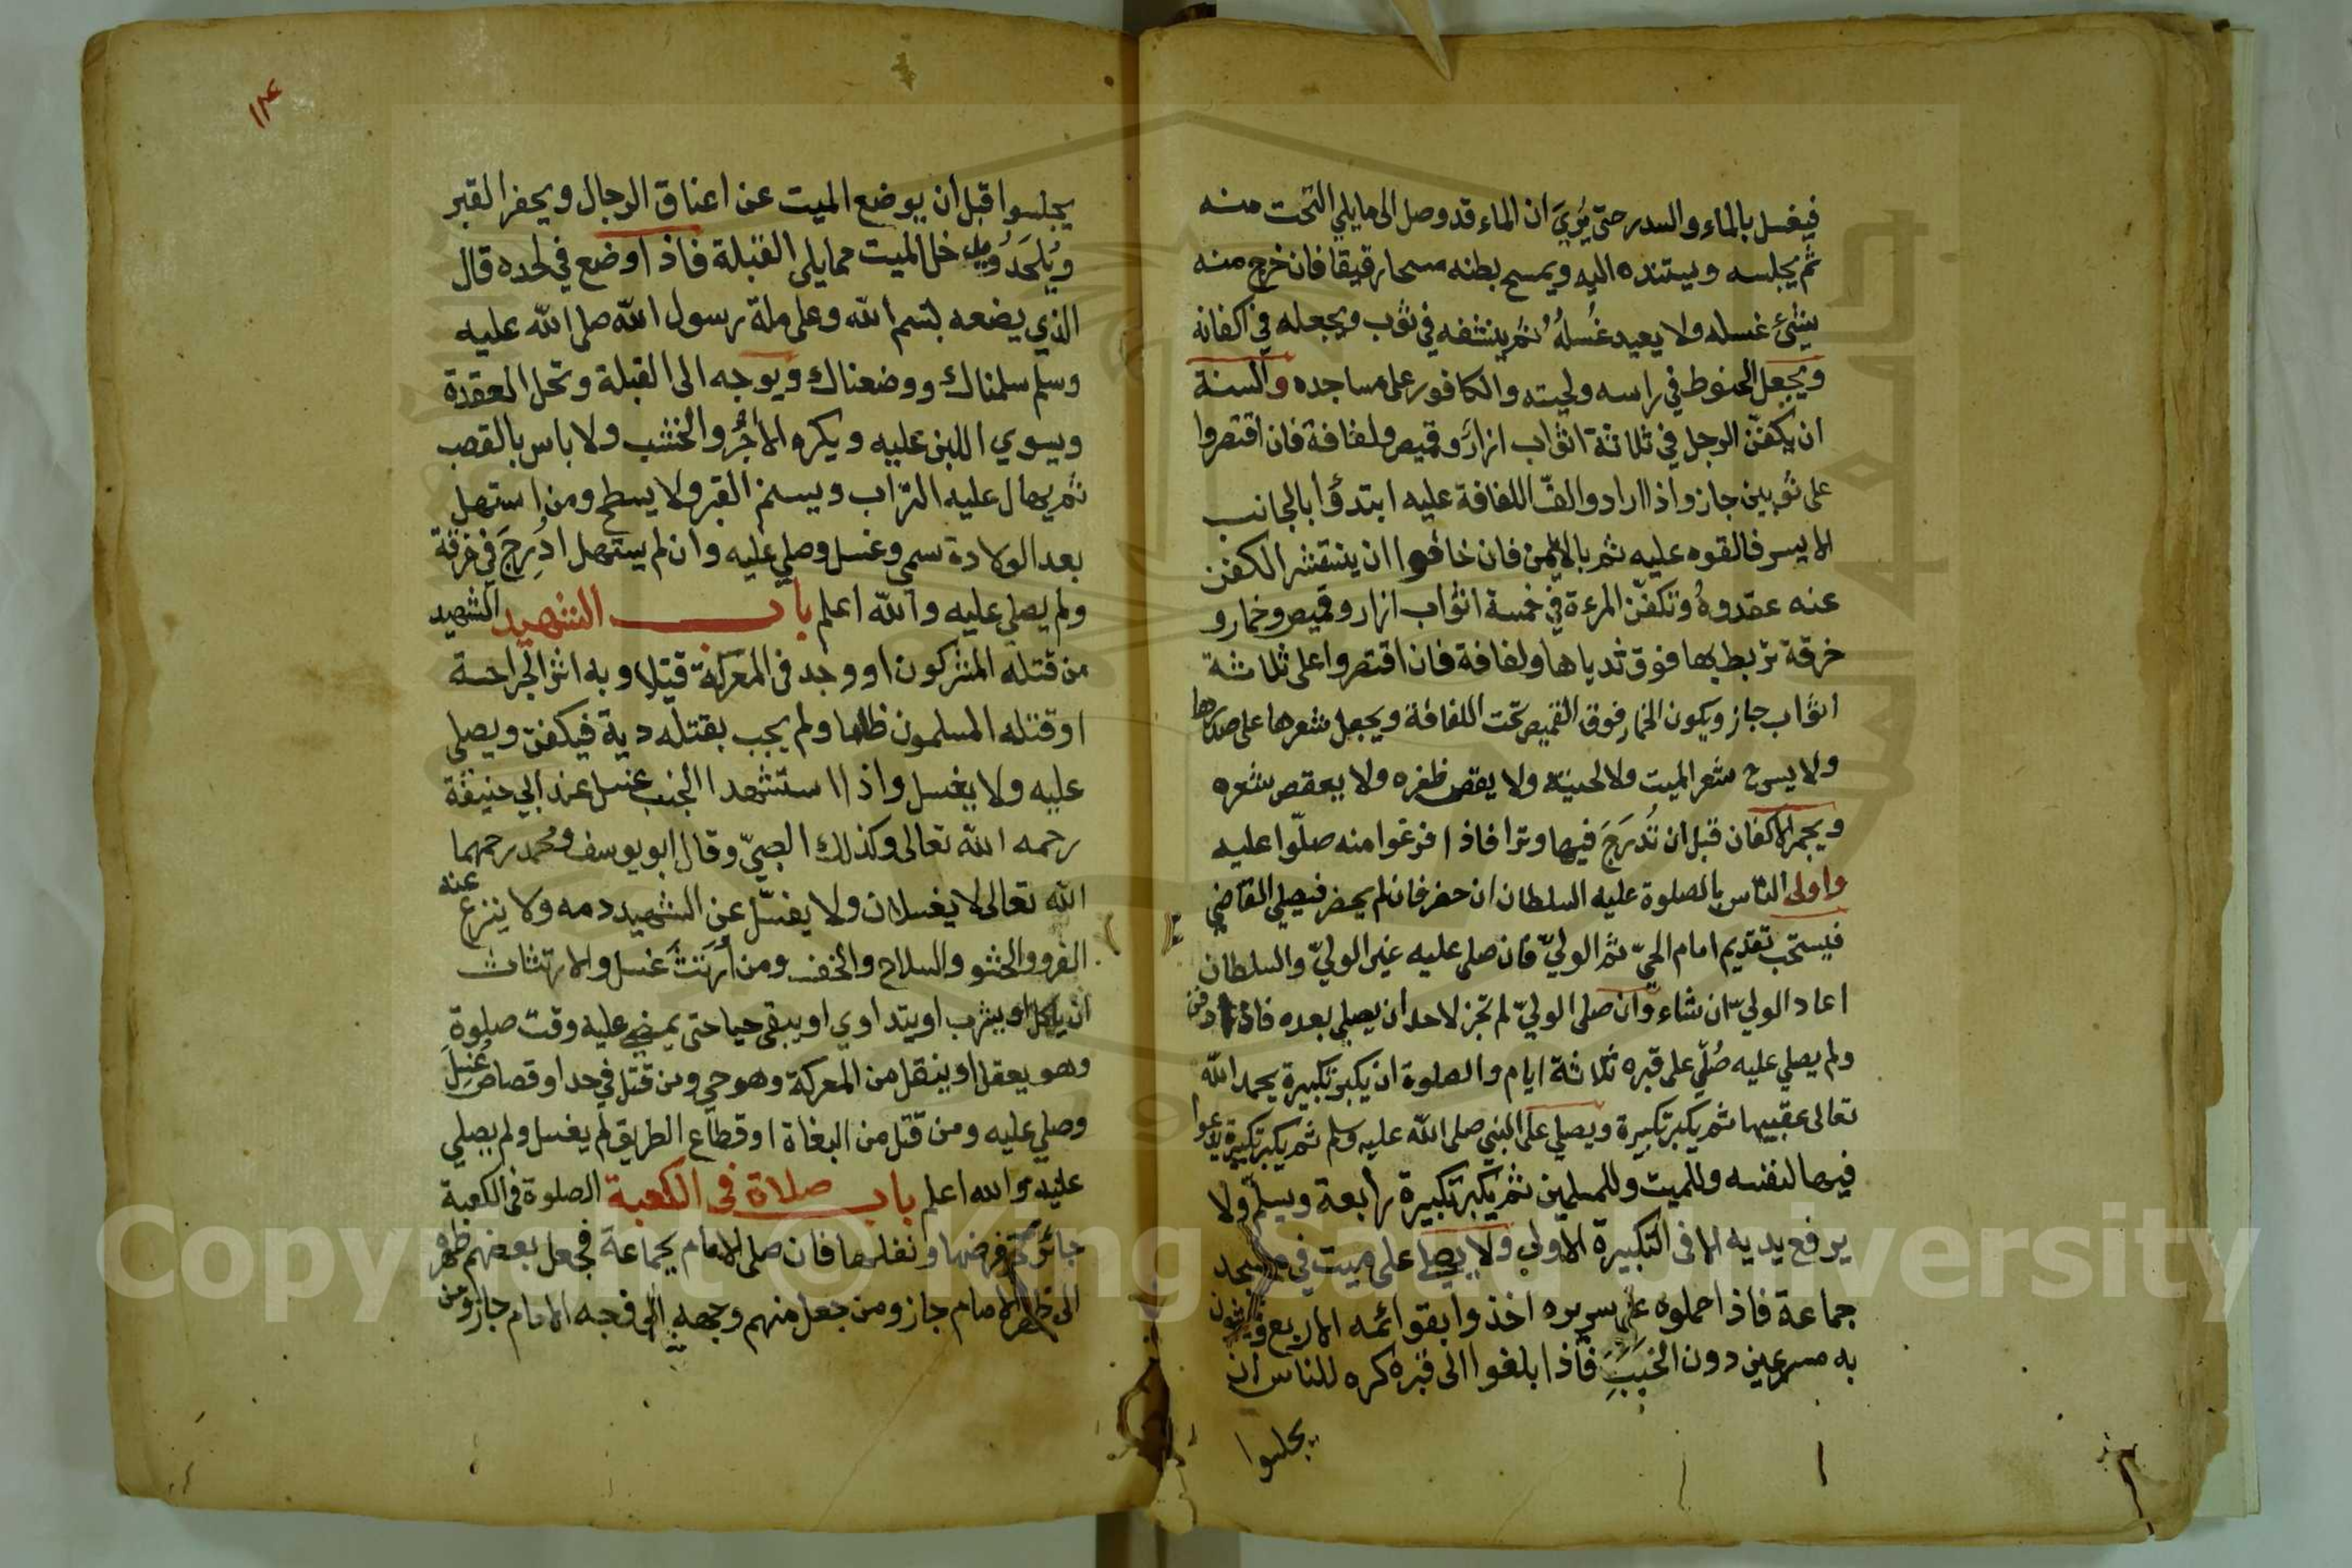 فيغسل بالماء والسدر حتى يُرَي ان الماء قد وصل الى ما يلي التحت منه
ثم يجلسه ويستنده اليه ويمسح بطنه مسحا رقيقا فان خرج منه
شئ غسله ولا يعيد غُسلُهُ ثم ينشفه في ثوب ويجعله في اكفانه
ويجعل الحنوط في راسه ولحيته والكافور على مساجده والسنة
ان يكفّن الرجل في ثلاثة اثواب ازار وقميص ولفافة فان اقتصروا
على ثوبين جاز واذا ارادوا لفّ اللفافة عليه ابتدؤا بالجانب
الايسر فالقوه عليه ثم بالايمن فان خافوا ان ينتشر الكفن
عنه عقدوهُ وتكفّن المرءة في خمسة اثواب ازار وقميص وخمار و
خرقة تربط بها فوق ثدياها ولفافة فان اقتصروا على ثلاثة
اثواب جاز ويكون الخمار فوق القميص تحت اللفافة ويجعل شعرها على صدرها
ولا يسرح شعر الميت ولا لحيته ولا يقص ظفره ولا يعقص شعره
ويجمر الاكفان قبل ان تُدرَجَ فيها وترا فاذا فرغوا منه صلّوا عليه
واولى الناس بالصلوة عليه السلطان ان حضر فان لم يحضر فيصلي القاضي
فيستحب تقديم امام الحيّ ثم الوليّ فان صلى عليه غير الوليّ والسلطان
اعاد الوليّ ان شاء وان صلى الوليّ لم تجز لاحد ان يصلي بعده فان دفن
ولم يصلي عليه صُلّي على قبره ثلاثة ايام والصلوة ان يكبر تكبيرة يحمد الله
تعالى عقبيها ثم يكبر تكبيرة ويصلي على النبي صلى الله عليه وسلم ثم يكبر تكبيرة يدعوا
فيها لنفسه وللميت وللمسلمين ثم يكبر تكبيرة رابعة ويسلّم ولا
يرفع يديه الا في التكبيرة الاولى ولا يصلي على ميت في مسجد
جماعة فاذا حملوه على سريره اخذوا بقوائمه الاربع ويمشون
به مسرعين دون الخَبَبِ فاذا بلغوا الى قبره كره للناس ان
يجلسوا
١٢٤
يجلسوا قبل ان يوضع الميت عن اعناق الرجال ويحفر القبر
ويُلحَدُ ويدخل الميت مما يلي القبلة فاذا وضع في لحده قال
الذي يضعه بسم الله وعلى ملة رسول الله صلى الله عليه
وسلم سلمناك ووضعناك ويوجه الى القبلة وتحل العقدة
ويسوي اللبن عليه ويكره الآجُرُّ والخشب ولا باس بالقصب
ثم يهال عليه التراب ويسنم القبر ولا يسطح ومن استهل
بعد الولادة سمي وغسل وصلي عليه وان لم يستهل ادُرِجَ في خرقة
ولم يصلي عليه والله اعلم باب الشهيد الشهيد
من قتله المشركون او وجد في المعركة قتيلا وبه اثر الجراحة
او قتله المسلمون ظلما ولم يجب بقتله دية فيكفن ويصلي
عليه ولا يغسل واذا استشهد الجنب غسل عند ابي حنيفة
رحمه الله تعالى وكذلك الصبيّ وقال ابو يوسف ومحمد رحمهما
الله تعالى لا يغسلان ولا يغسّل عن الشهيد دمه ولا ينزع عنه
الفرو والحشو والسلاح والخف ومن اُرتَثَّ غسل والارتثاث
ان ياكل او يشرب او يتداوي او يبقى حيا حتى يمضي عليه وقت صلوة
وهو يعقل او ينقل من المعركة وهو حي ومن قتل في حد او قصاص غُسِلَ
وصلي عليه ومن قتل من البغاة او قطاع الطريق لم يغسل ولم يصلي
عليه والله اعلم باب صلاة في الكعبة الصلوة في الكعبة
جائزة فرضها ونفلها فان صلى الامام بجماعة فجعل بعضهم ظهره
الى ظهر الامام جاز ومن جعل منهم وجهه الى وجه الامام جاز ومن
Copyright © King Saud University